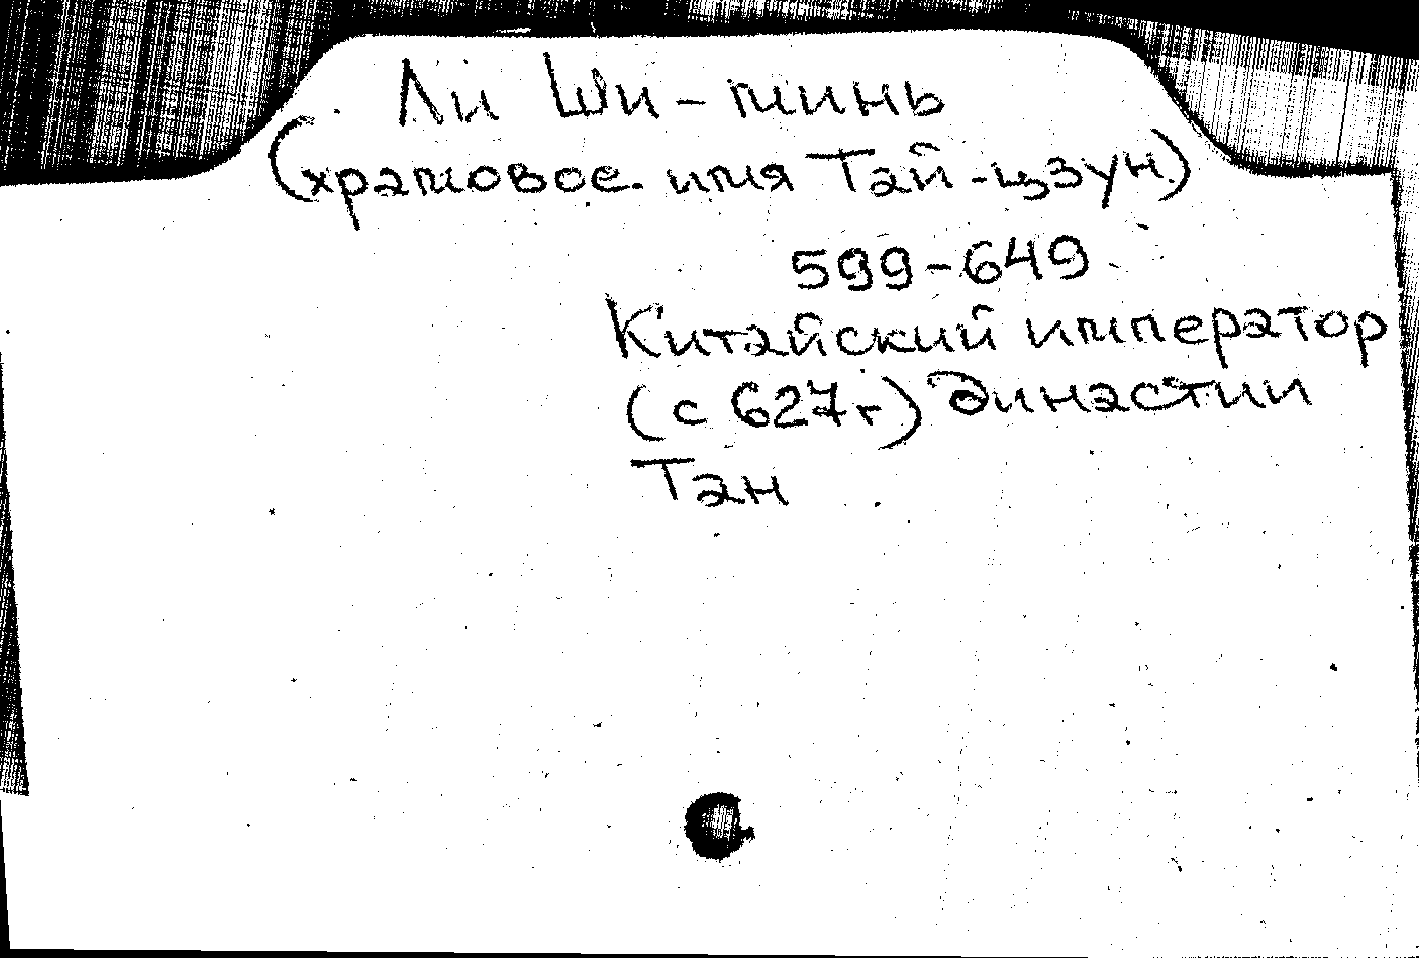 Ли Ши-минь
(храмовое имя Тай-цзун)
599-649
Китайский император
(с 627г) династии
Тан